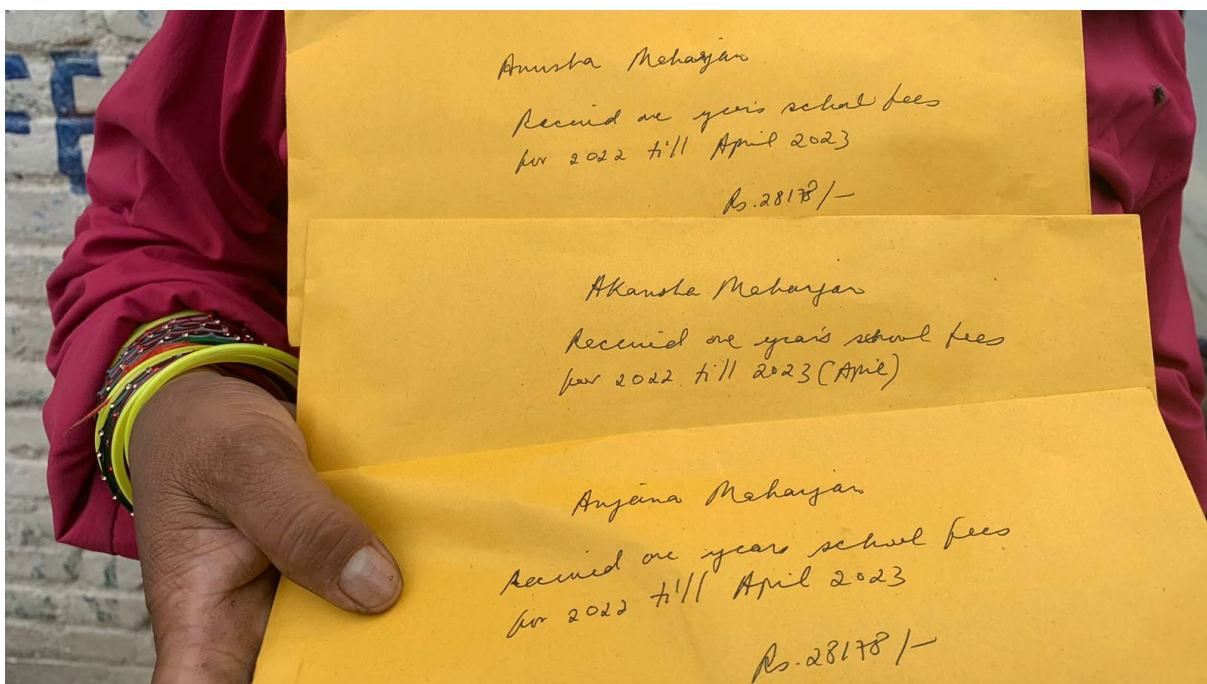 Anusha Meharjan
Received one year's school fees
for 2022 till April 2023
Rs. 28178/-
Akansha Meharjan
Received one year's school fees
for 2022 till 2023 (April)
Anjeina Meharjan
Received one years school fees
for 2022 till April 2023
Rs. 28178/-